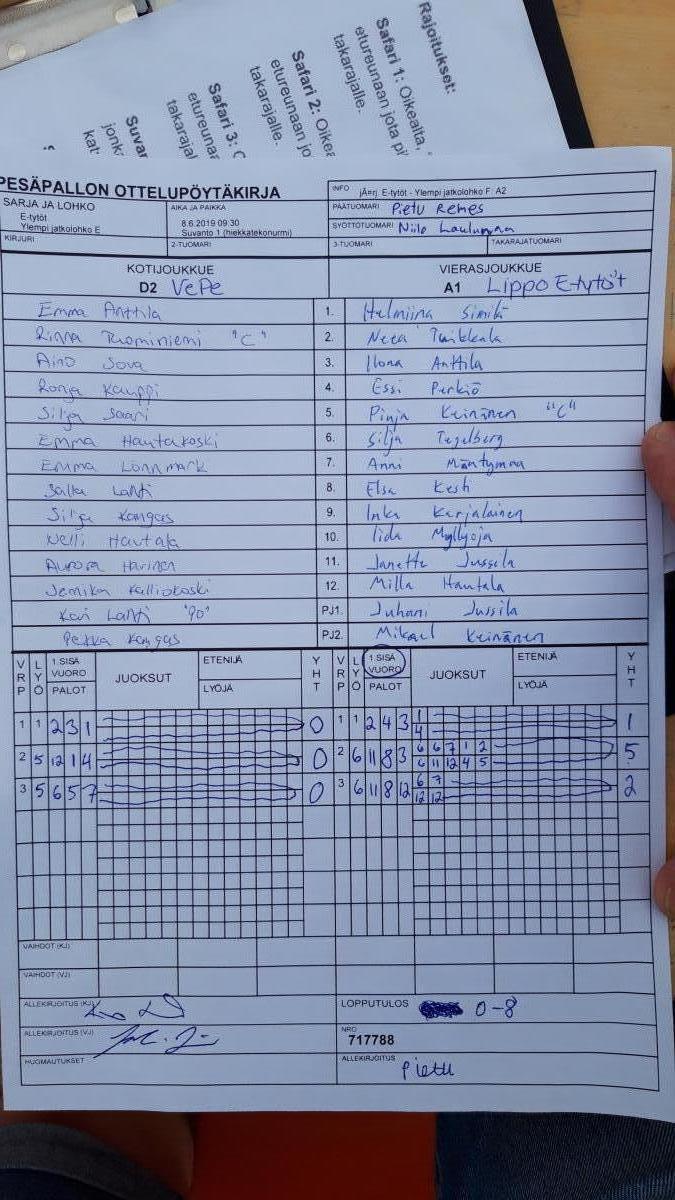 Rajoitukset:
Safari 1: Oikealta,
etureunaan jota
takarajalle.
Safari 2:
etureunaan
takarajalle.
Safari 3:
PESÄPALLON OTTELUPÖYTÄKIRJA
SARJA JA LOHKO
E-tytöt
Ylempi jatkolohko E
AIKA JA PAIKKA
8.6.2019 09:30
Suvanto 1 (hiekkatekonurmi)
KIRJURI
2-TUOMARI
INFO jÄrj. E-tytöt - Ylempi jatkolohko F: A2
PÄÄTUOMARI Pietu Remes
SYÖTTÖTUOMARI Niilo
3-TUOMARI
TAKARAJATUOMARI
KOTIJOUKKUE
D2 VePe
VIERASJOUKKUE
A1 Lippo E-tytöt
Emma Anttila 1. Helmiina Similä
Rinna Tuominiemi "C" 2. Neea Tuikkala
Aino Sova 3. Ilona Anttila
Ronja Kauppi 4. Essi Perkiö
Silja Saari 5. Pinja Keinänen "C"
Emma Hautakoski 6. Silja Tegelberg
Emma Lönnmark 7. Anni Mäntymaa
Salla Lahti 8. Elsa Kesti
Silja Kangas 9. Inka Karjalainen
Nelli Hautala 10. Iida Myllyoja
Aurora Harinen 11. Janette Jussila
Jemika Kalliokoski 12. Milla Hautala
Kari Lahti "PO" PJ1. Juhani Jussila
Pekka Kangas PJ2. Mikael Keinänen
VRP LYÖ 1.SISÄ VUORO PALOT JUOKSUT ETENIJÄ LYÖJÄ YHT VRP LYÖ 1.SISÄ VUORO PALOT JUOKSUT ETENIJÄ LYÖJÄ YHT
1 1 2 3 1 0 1 1 2 4 3 1 1
4
2 5 12 1 4 0 2 6 11 8 3 6 6 7 1 2 5
6 11 12 4 5
3 5 6 5 7 0 3 6 11 8 12 6 7 2
12 12
VAIHDOT (KJ)
VAIHDOT (VJ)
ALLEKIRJOITUS (KJ)
LOPPUTULOS 0-8
ALLEKIRJOITUS (VJ)
NRO
717788
HUOMAUTUKSET
ALLEKIRJOITUS
Pietu